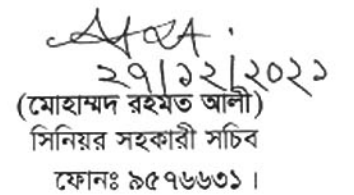 ২৭/১২/২০২১
(মোহাম্মদ রহমত আলী)
সিনিয়র সহকারী সচিব
ফোনঃ ৯৫৭৬৬৩১।